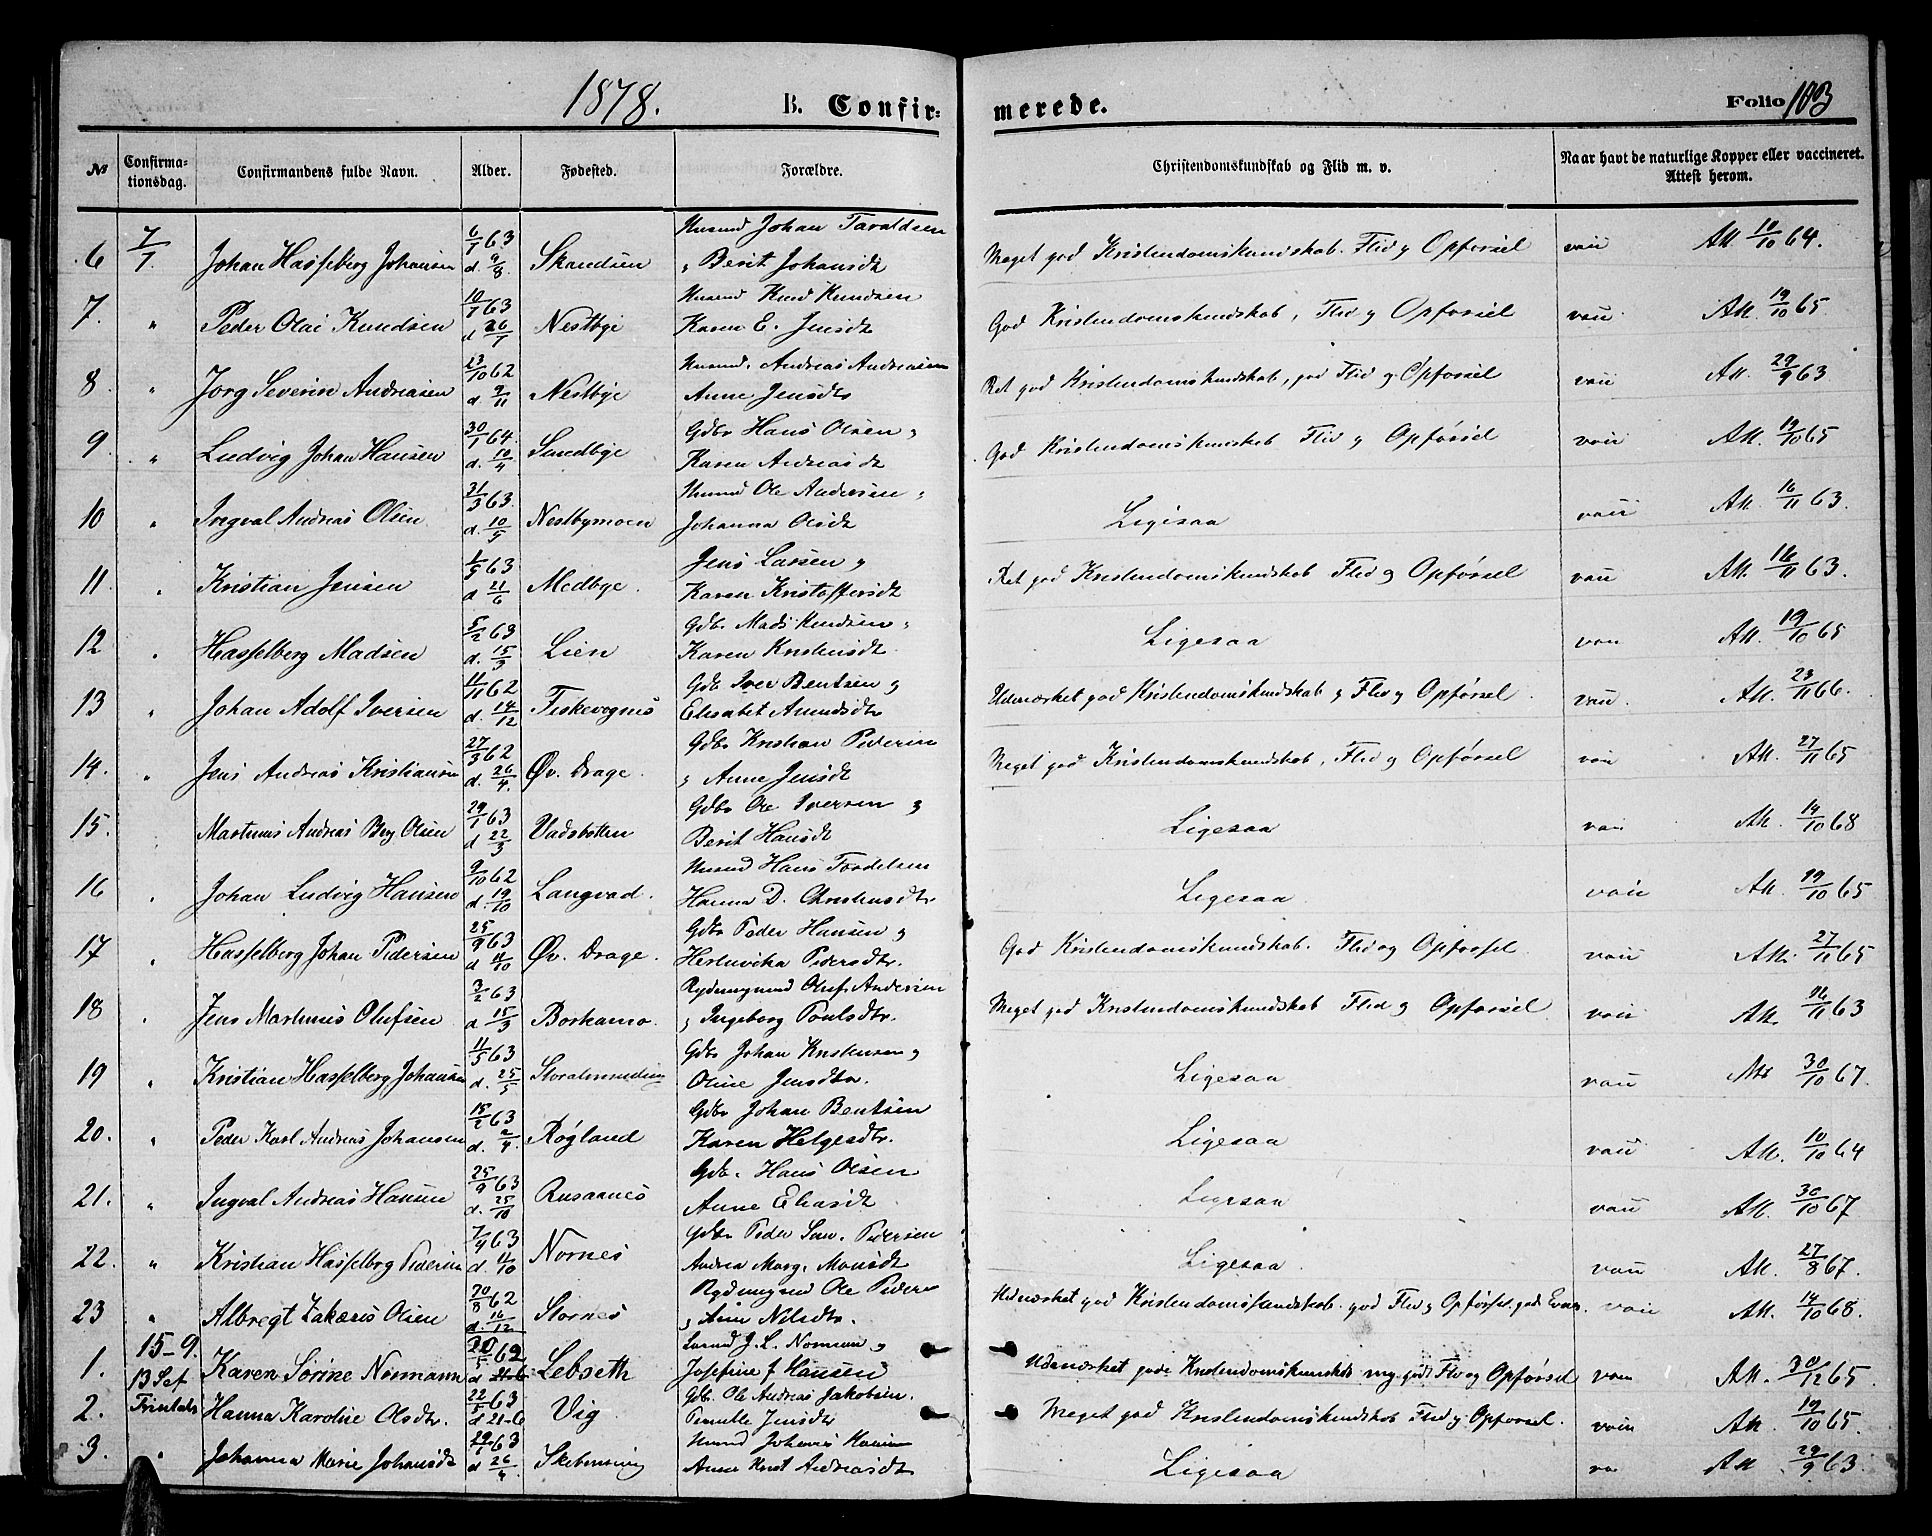 1878. B. Confir- merede. Folio 103
№ Confirma-tionsdag. Confirmandens fulde Navn. Alder. Fødested. Forældre. Christendomskundskab og Flid m. v. Naar havt de naturlige Kopper eller vaccineret. Attest herom.
6/1 63 Husmd Johan Taraldsen
6 7/7. Johan Hasselberg Johansen d. 9/8. Skandsen " Berit Johansdt Meget god Kristendomskundskab. Flid og Opførsel Att 10/10 64.
10/1 63 Husmd Knud Knudsen
7. " Peder Olai Knudsen d 26/7 Nestbye Karen E. Jensdt God Kristendomskundskab, Flid og Opførsel Att. 19/10 65
23/10 62 Husmd. Andreas Andreasen
8 " Jorg Severin Andreasen d. 9/11 Nestbye Anne Jensdtr Ret god Kristendomskundskab, god Flid og Opførsel Att. 29/9 63
30/1 64. Gdbr Hans Olsen "
9 " Ludvig Johan Hansen d. 10/4 Sundbye Karen Andreasdt God Kristendomskundskab Flid og Opførsel Att. 19/10 65
31/3 63. Husmd Ole Andersen "
10 " Ingval Andreas Olsen d. 10/5 Nestbymoen Johanna Olsdt Ligesaa Att. 16/11 63.
1/5 63 Jens Larsen og
11. " Kristian Jensen d 21/6 Medbye. Karen Kristoffersdt Ret god Kristendomskundskab Flid og Opførsel Att. 16/11 63.
5/2 63 Gdb. Mads Knudsen "
12 " Hasselberg Madsen d. 15/3 Lien Karen Kristensdt Ligesaa Att. 19/10 65
11/11 62 Gdb Iver Bentsen og
13 " Johan Adolf Iversen d. 14/12 Fiskevognes Elisabet Amundsdtr Udmærket god Kristendomskundskab, Flid og Opførsel. Att. 23/11 66.
27/3 62 Gdbr Kristian Pedersen
14. " Jens Andreas Kristiansen d. 26/4. Øv. Drage. " Anne Jensdt Meget god Kristendomskundskab, Flid og Opførsel Att. 27/11 65
29/1 63 Gdbr Ole Iversen og
15. Martinus Andreas Berg Olsen d 22/3 Vadsbotten Berit Hansdt Ligesaa Att. 14/10 68
9/10 62 Husmd Hans Tordelsen
16 " Johan Ludvig Hansen d. 19/10 Langvad. Hanna D. Christensdtr Ligesaa Att. 19/10 65
25/9 63 Gdbr Peder Hansen og
17 " Hasselberg Johan Pedersen d 11/10 Øv. Drage. Pedersdtr. God Kristendomskundskab. Flid og Opførsel. Att. 27/11 65
3/2 63 Rydningsmd Oluf Andersen
18 " Jens Martinus Olufsen d 15/3 Borkamo. " Ingeborg Poulsdtr. Meget god Kristendomskundskab Flid og Opførsel Att. 16/11 63
11/5 63 Gdbr Johan Kristensen og
19 " Kristian Hasselberg Johansen d. 25/5 Oline Jensdtr. Ligesaa Att 30/10 67.
15/2 63 Gdbr Johan Bentsen
20. " Peder Karl Andreas Johansen d. 2/4. Røgland Karen Helgesdtr. Ligesaa Att. 10/10 64
25/9 63 Gdb. Hans Olsen
21. " Ingval Andreas Hansen d. 25/10 Rusaanes Anne Eliasdt Ligesaa Att. 30/10 67
7/4 63 Gdbr Peder Pedersen
22. " Kristian Hasselberg Pedersen d. 11/10 Nornes Andrea Marg. Monsdt Ligesaa. Att. 27/8 67.
20/8 62 Rydningsmd Ole Peders
23 " Albregt Zakæris Olsen d. 16/12 Stornes " Ane Nilsdtr. Udmærket god Kristendomskundskab. god Flid og Opførsel Att. 14/10 68.
15-9. 20/5 62 J. L. Normann og
1. 13 Sef Karen Sørine Normann d Lebseth Josefine f Hansen Udmærket gode Kristendomskundskab mg. god Flid og Opførsel Att. 30/12 65.
Trinitatis 22/5 63 Gdb. Ole Andreas Jakobsen.
2. Hanna Karoline Olsdtr. d 21-6 Vig Pernille Jensdtr Meget god Kristendomskundskab Flid og Opførsel. Att. 19/10 65.
29/1 63 Husmd Johannes Hansen
3. " Johanna Marie Johansdt d 26/4 Anne Andreasdt Ligesaa Att 29/9 63.